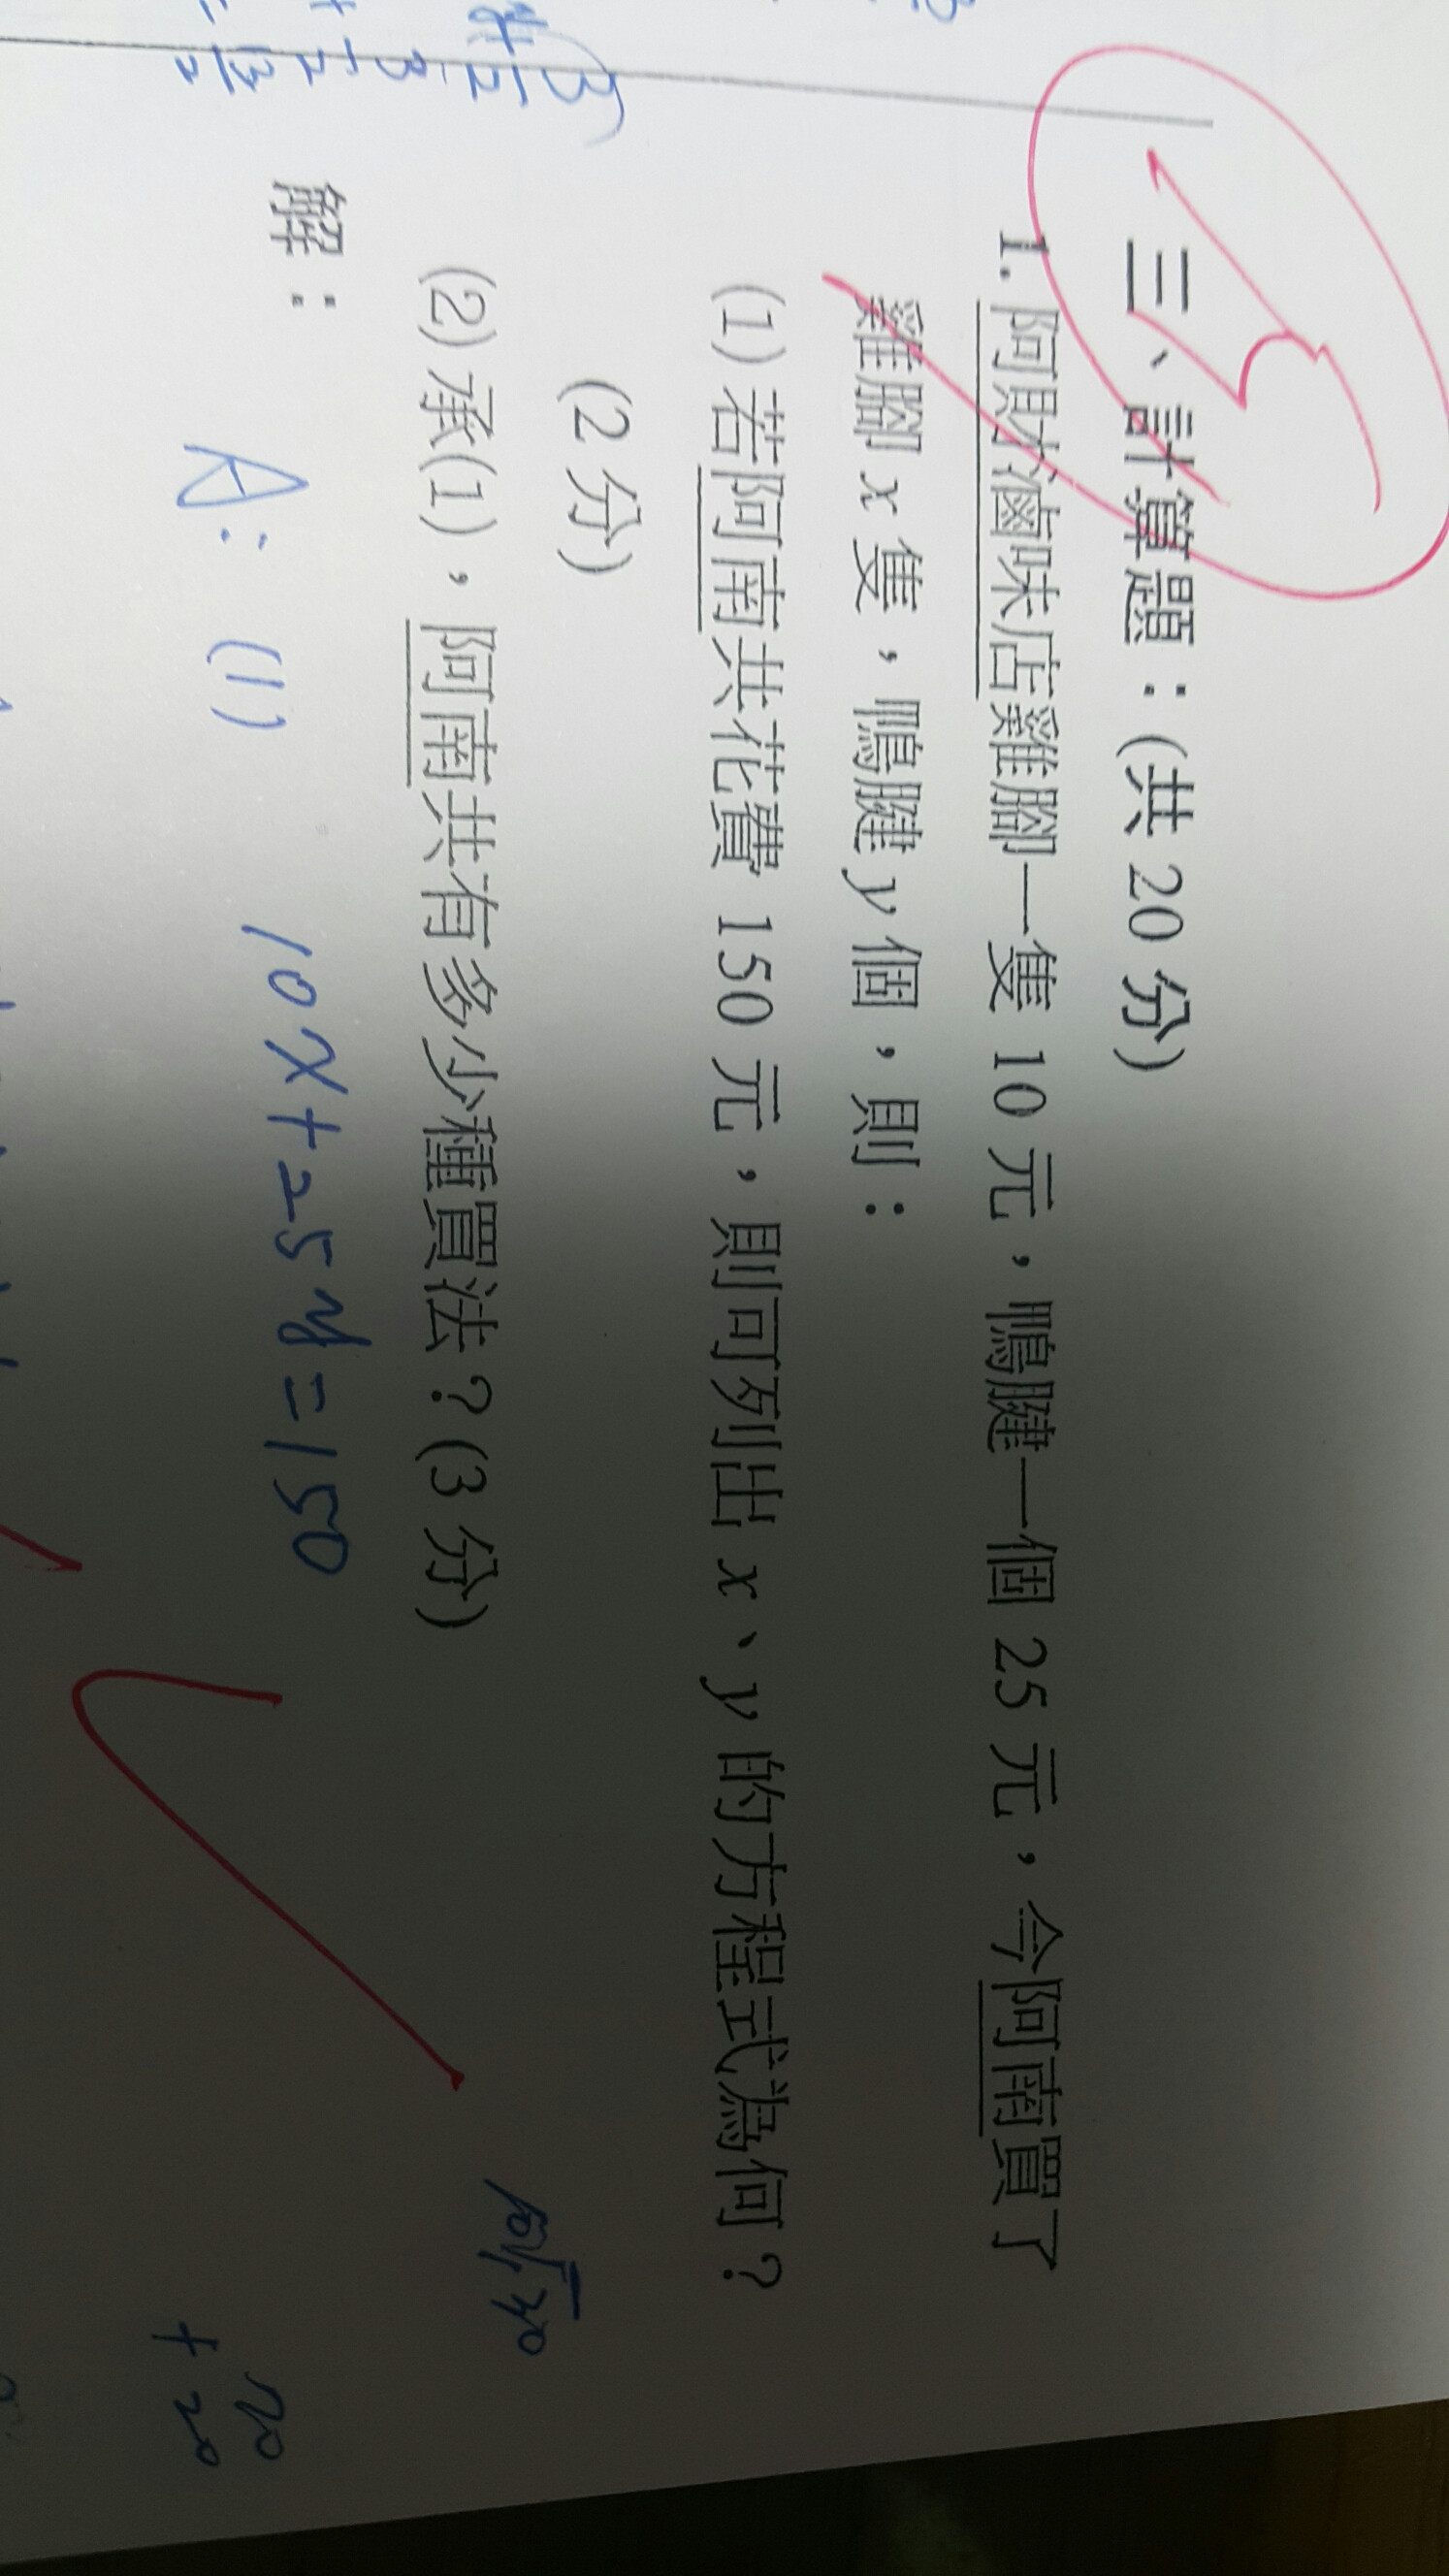 三、計算題：(共 20 分)
1. 阿財滷味店雞腳一隻 10 元，鴨腱一個 25 元，今阿南買了
雞腳 x 隻，鴨腱 y 個，則：
(1) 若阿南共花費 150 元，則可列出 x、y 的方程式為何？
(2 分)
(2) 承(1)，阿南共有多少種買法？(3 分)
解：
A： (1) 10x+25y=150
+ 20